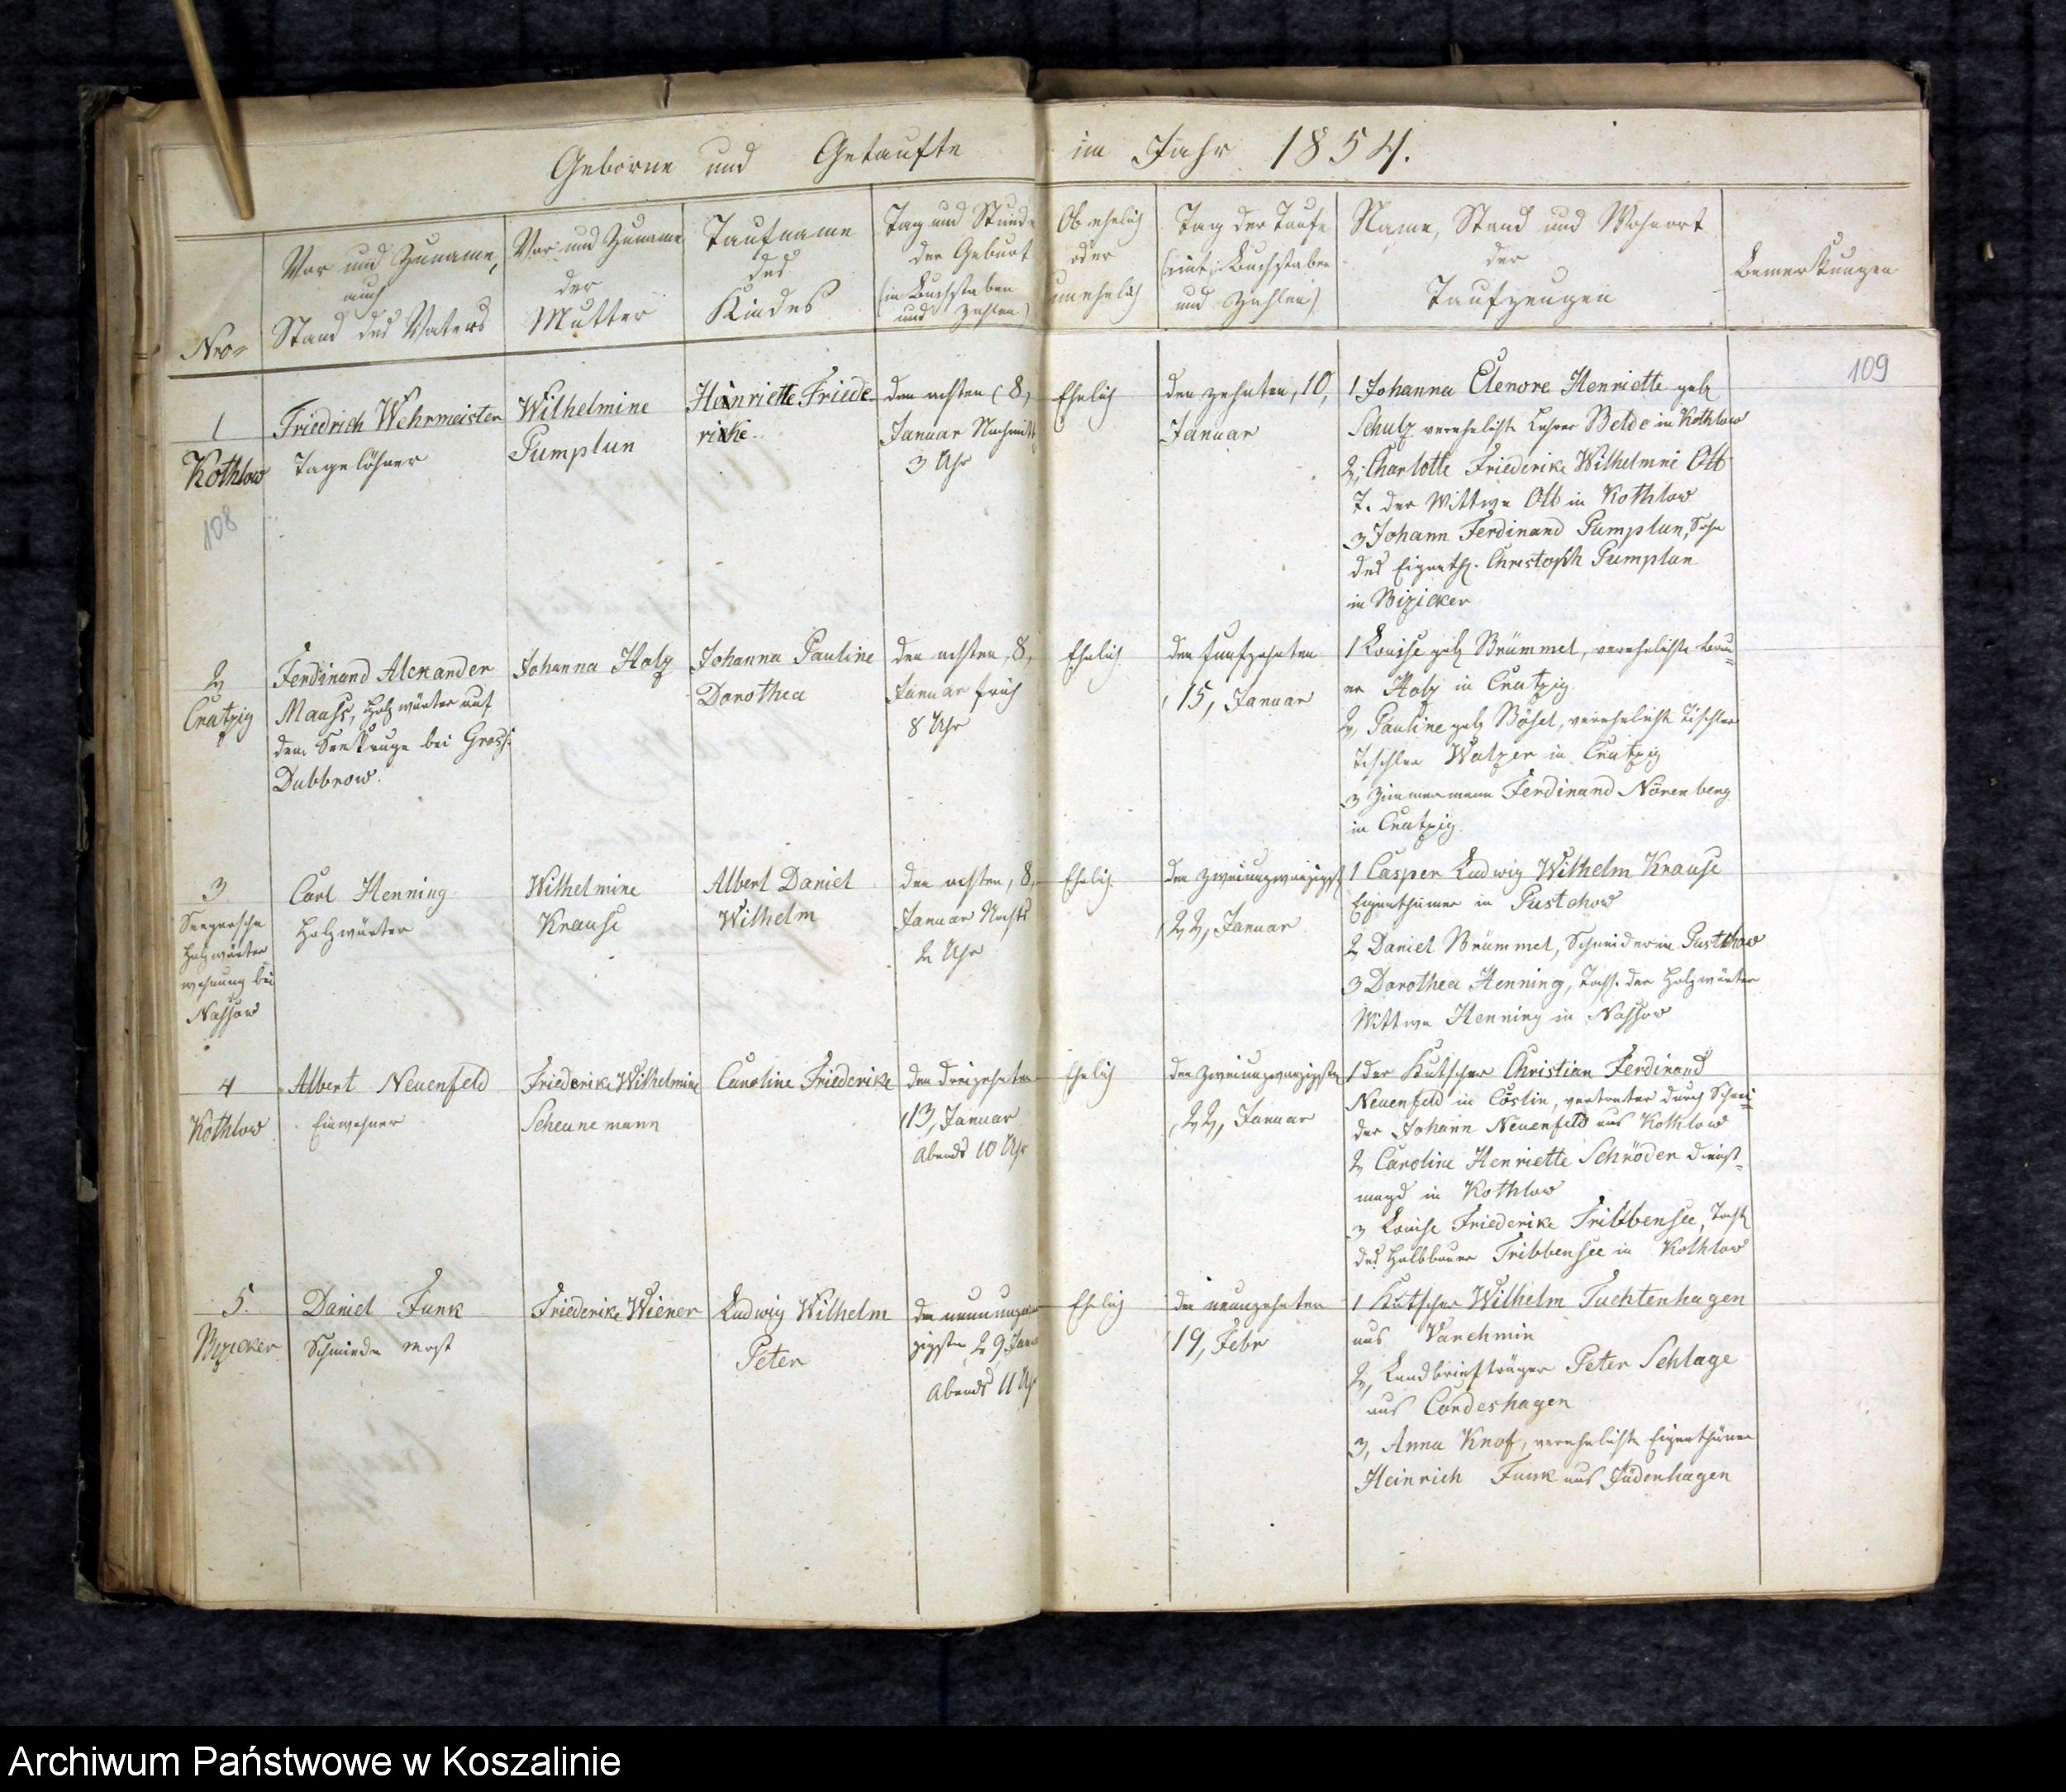 Geborne und Getaufte im Jahr 1854.
Nro
Vor und Zuname,
auch
Stand des Vaters
Vor und Zuname
der
Mutter
Taufname
des
Kindes
Tag und Stunde
der Geburt
(in Buchstaben
und Zahlen)
Ob ehelich
oder
unehelich
Tag der Taufe
(mit Buchstaben
und Zahlen)
Name, Stand und Wohnort
der
Taufzeugen
Bemerkungen
109
1
Kothlow
108
Friedrich Wehrmeister
Tagelöhner
Wilhelmine
Pumplun
Henriette Friede
rike
den achten (8,
Januar Nachmitt
3 Uhr
Ehelich
den zehnten, 10,
Januar
1 Johanna Elenore Henriette geb
Schulz verehelichte Lehrer Belde in Kothlow
2, Charlotte Friederike Wilhelmine Ott
T. der Wittwe Ott in Kothlow
3 Johann Ferdinand Pumplun, Sohn
des Eigenth. Christoph Pumplun
in Bizicker
2
Cratzig
Ferdinand Alexander
Maass, Holzwärter auf
dem Seekruge bei Gross
Dubbrow.
Johanna Holz
Johanna Pauline
Dorothea
den achten, 8,
Januar früh
8 Uhr
Ehelich
den funfzehnten
15, Januar
1 Louise geb Brümmel, verehelichte Bau=
er Holz in Cratzig
2, Pauline geb Bösel, verehelicht Tischler
Tischler Walzer in Cratzig
3 Zimmermann Ferdinand Nörenberg
in Cratzig.
3
Holzwärter
wohnung bei
Nassow
Carl Henning
Holzwärter
Wilhelmine
Krause
Albert Daniel
Wilhelm
den achten, 8,
Januar Nachts
2 Uhr
Ehelich
den zweiundzwanzigst
22, Januar
1 Casper Ludwig Wilhelm Krause
Eigenthümer in Pustchow
2 Daniel Brümmel, Schneider in Pustchow
3 Dorothea Henning, Toch. der Holzwärter
Wittwe Henning in Nassow
4
Kothlow
Albert Neuenfeld
Einwohner
Friederike Wilhelmine
Scheunemann
Caroline Friederike
den dreizehnten
13, Januar
Abends 10 Uhr
Ehelich
den zweiundzwanzigsten
22, Januar
1 der Kutscher Christian Ferdinand
Neuenfeld in Cöslin, vertreten durch Schnei=
der Johann Neuenfeld aus Kothlow
2 Caroline Henriette Schröder Dienst=
magd in Kothlow
3 Louise Friederike Tribbensee, Toch
des Halbbauer Tribbensee in Kothlow
5.
Bizicker
Daniel Funk
Schmiede
Friederike Wiener
Ludwig Wilhelm
Peter
den neunundzwan
zigsten 29 Janu
Abends 11 Uhr
Ehelich
den neunzehnten
19, Febr
1 Kutscher Wilhelm Tuchtenhagen
aus Varchmin
2, Landbriefträger Peter Schlage
aus Cordeshagen
3, Anna Knof, verehelichte Eigenthümer
Heinrich Funk aus Jüdenhagen
Archiwum Państwowe w Koszalinie